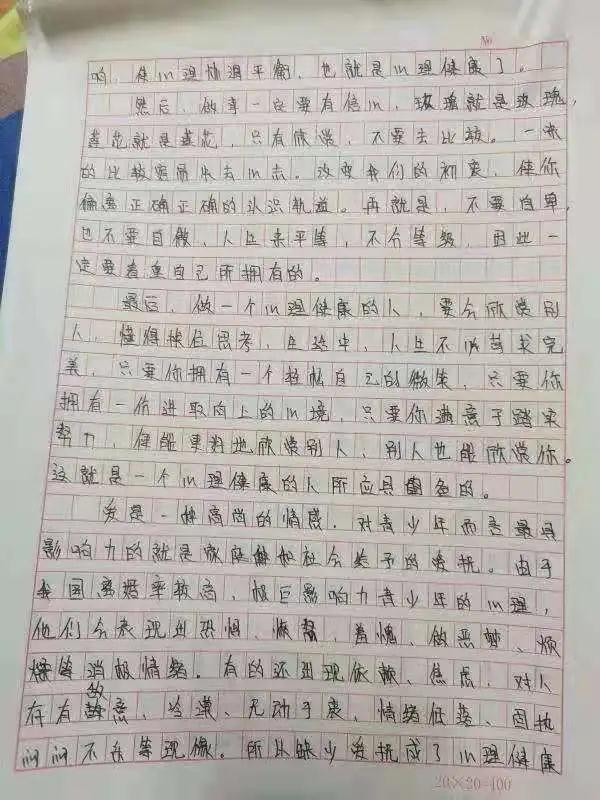 No
响，使心理协调平衡，也就是心理健康了。
然后，做事一定要有信心，玫瑰就是玫瑰，
莲花就是莲花，只有欣赏，不要去比较。一味
的比较容易失去心去。改变我们的初衷，使你
偏离正确正确的认识轨道。再就是，不要自卑，
也不要自傲，人生来平等，不分等级，因此一
定要看重自己所拥有的。
最后，做一个心理健康的人，要会欣赏别
人，懂得换位思考，生活中，人生不必苛求完
美，只要你拥有一个轻松自己的微笑，只要你
拥有一份进取向上的心境，只要你满意于踏实
努力，便能更好地欣赏别人，别人也能欣赏你。
这就是一个心理健康的人所应具备的。
爱是一种高尚的情感，对青少年而言最具
影响力的就是家庭和社会给予的爱抚。由于
我国离婚率较高，极巨影响力青少年的心理，
他们会表现出恐惧、羞愧、做恶梦、烦
躁等消极情绪。有的还出现依赖、焦虑，对人
存有敌意，冷漠、无动于衷，情绪低落、固执
闷闷不乐等现像。所以缺少爱抚成了心理健康
20×20=400